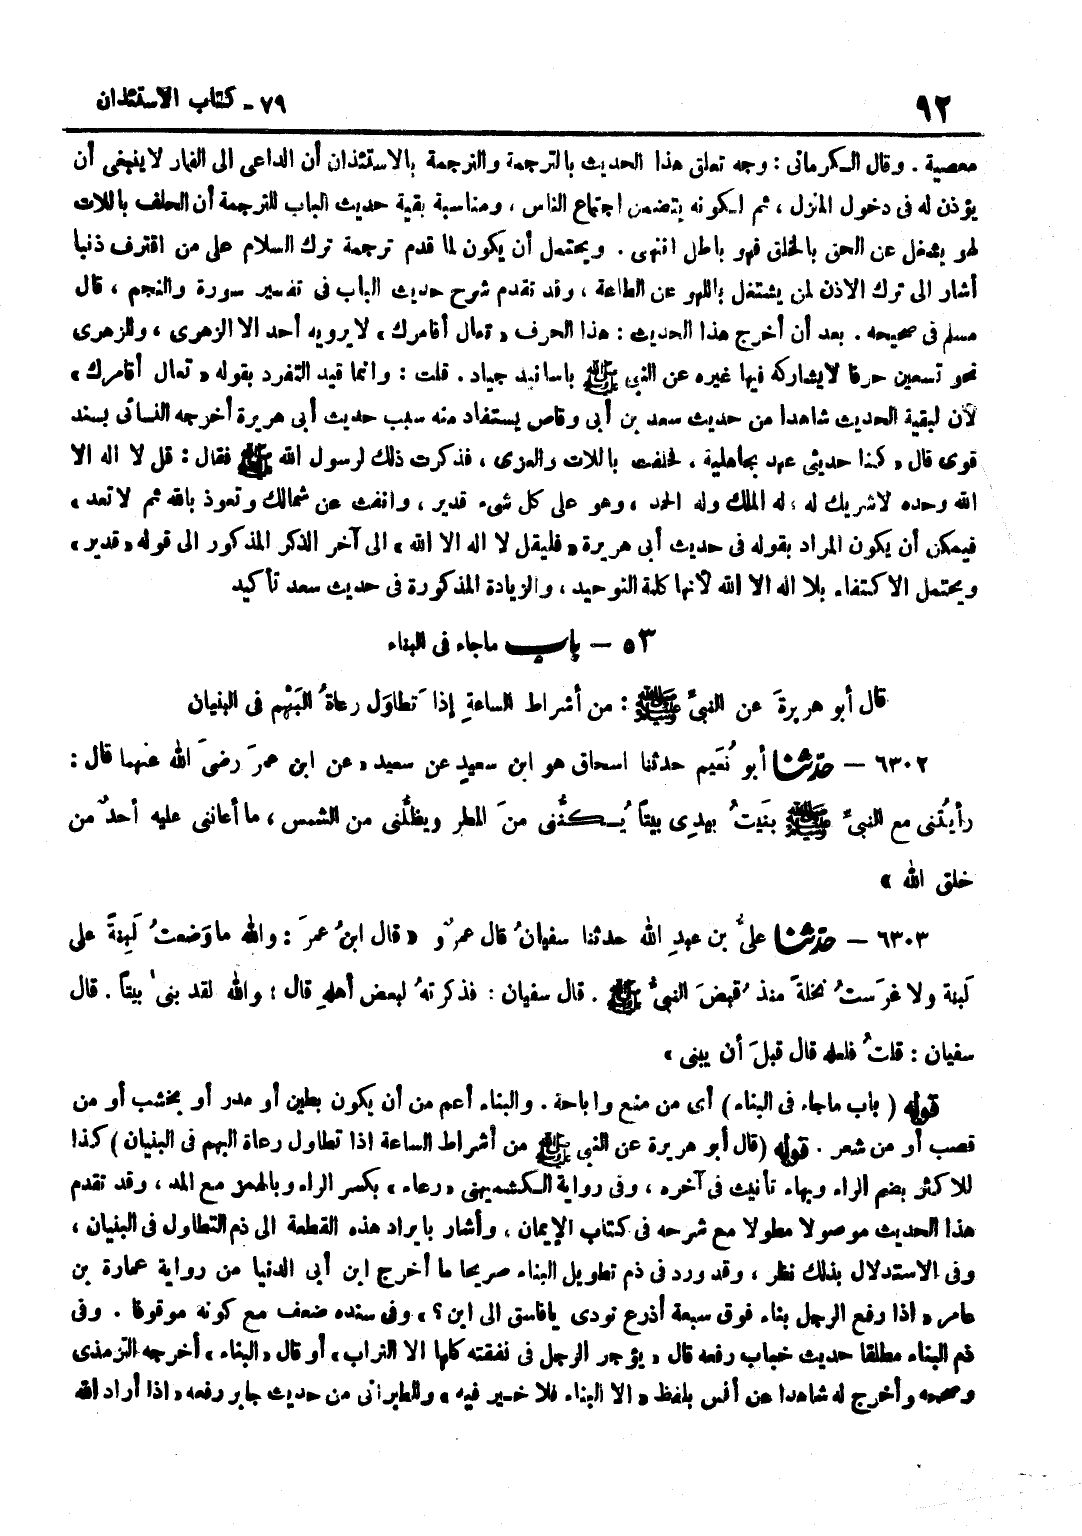 ٩٢
٧٩ - كتاب الاستئذان
معصية . وقال الكرمانى : وجه تعلق هذا الحديث بالترجمة والترجمة بالاستئذان أن الداعى الى القمار لا ينبغى أن
يؤذن له فى دخول المنزل ، ثم لكونه يتضمن اجتماع الناس ، ومناسبة بقية حديث الباب للترجمة أن الحلف باللات
لهو يشغل عن الحق بالخلق فهو باطل انتهى . ويحتمل أن يكون لما قدم ترجمة ترك السلام على من اقترف ذنبا
أشار الى ترك الاذن لمن يشتغل باللهو عن الطاعة ، وقد تقدم شرح حديث الباب فى تفسير سورة والنجم ، قال
مسلم فى صحيحه . بعد أن أخرج هذا الحديث : هذا الحرف « تعال أقامرك ، لا يرويه أحد الا الزهرى ، وللزهرى
نحو تسعين حرفا لا يشاركه فيها غيره عن النبى ﷺ بأسانيد جياد . قلت : وانما قيد التفرد بقوله « تعال أقامرك »
لأن لبقية الحديث شاهدا من حديث سعد بن أبى وقاص يستفاد منه سبب حديث أبى هريرة أخرجه النسائى بسند
قوى قال « كنا حديثى عهد بجاهلية ، فحلفت باللات والعزى ، فذكرت ذلك لرسول الله ﷺ فقال : قل لا اله الا
الله وحده لا شريك له ، له الملك وله الحمد ، وهو على كل شىء قدير ، وانفث عن شمالك وتعوذ بالله ثم لا تعد »
فيمكن أن يكون المراد بقوله فى حديث أبى هريرة « فليقل لا اله الا الله » الى آخر الذكر المذكور الى قوله « قدير »
ويحتمل الاكتفاء بلا اله الا الله لأنها كلمة التوحيد ، والزيادة المذكورة فى حديث سعد تأكيد
٥٣ - باب ماجاء فى البناء
قال أبو هريرةَ عن النبىِّ ﷺ : من أشراط الساعةِ إذا تَطاوَل رعاةُ البَهْم فى البنيان
٦٣٠٢ - حدّثنا أبو نُعَيم حدثنا اسحاق هو ابن سعيدٍ عن سعيد « عن ابن عمرَ رضىَ الله عنهما قال :
رأيتُنى مع النبىِّ ﷺ بنَيتُ بيدِى بيتاً يُكنُّنى منَ المطر ويظلُّنى من الشمس ، ما أعاننى عليه أحدٌ من
خلق الله »
٦٣٠٣ - حدّثنا علىُّ بن عبدِ الله حدثنا سفيانُ قال عمرٌو « قال ابنُ عمرَ : والله ما وَضعتُ لَبِنةً على
لَبِنة ولا غرَستُ نخلةً منذ قُبضَ النبىُّ ﷺ . قال سفيان : فذكرتهُ لبعض أهلهِ قال : والله لقد بنىٰ بيتاً . قال
سفيان : قلتُ فلعله قال قبلَ أن يبنى »
قوله ( باب ماجاء فى البناء ) أى من منع واباحة . والبناء أعم من أن يكون بطين أو مدر أو بخشب أو من
قصب أو من شعر . قوله (قال أبو هريرة عن النبى ﷺ من أشراط الساعة اذا تطاول رعاة البهم فى البنيان ) كذا
للاكثر بضم الراء وبهاء تأنيث فى آخره ، وفى رواية الكشميهنى « رعاء » بكسر الراء وبالهمز مع المد ، وقد تقدم
هذا الحديث موصولا مطولا مع شرحه فى كتاب الإيمان ، وأشار بايراد هذه القطعة الى ذم التطاول فى البنيان ،
وفى الاستدلال بذلك نظر ، وقد ورد فى ذم تطويل البناء صريحا ما أخرج ابن أبى الدنيا من رواية عمارة بن
عامر « اذا رفع الرجل بناء فوق سبعة أذرع نودى يافاسق الى اين ؟ » وفى سنده ضعف مع كونه موقوفا . وفى
ذم البناء مطلقا حديث خباب رفعه قال « يؤجر الرجل فى نفقته كلها الا التراب » أو قال « البناء » أخرجه الترمذى
وصححه وأخرج له شاهدا عن أنس بلفظ « الا البناء فلا خير فيه » وللطبرانى من حديث جابر رفعه « اذا أراد الله